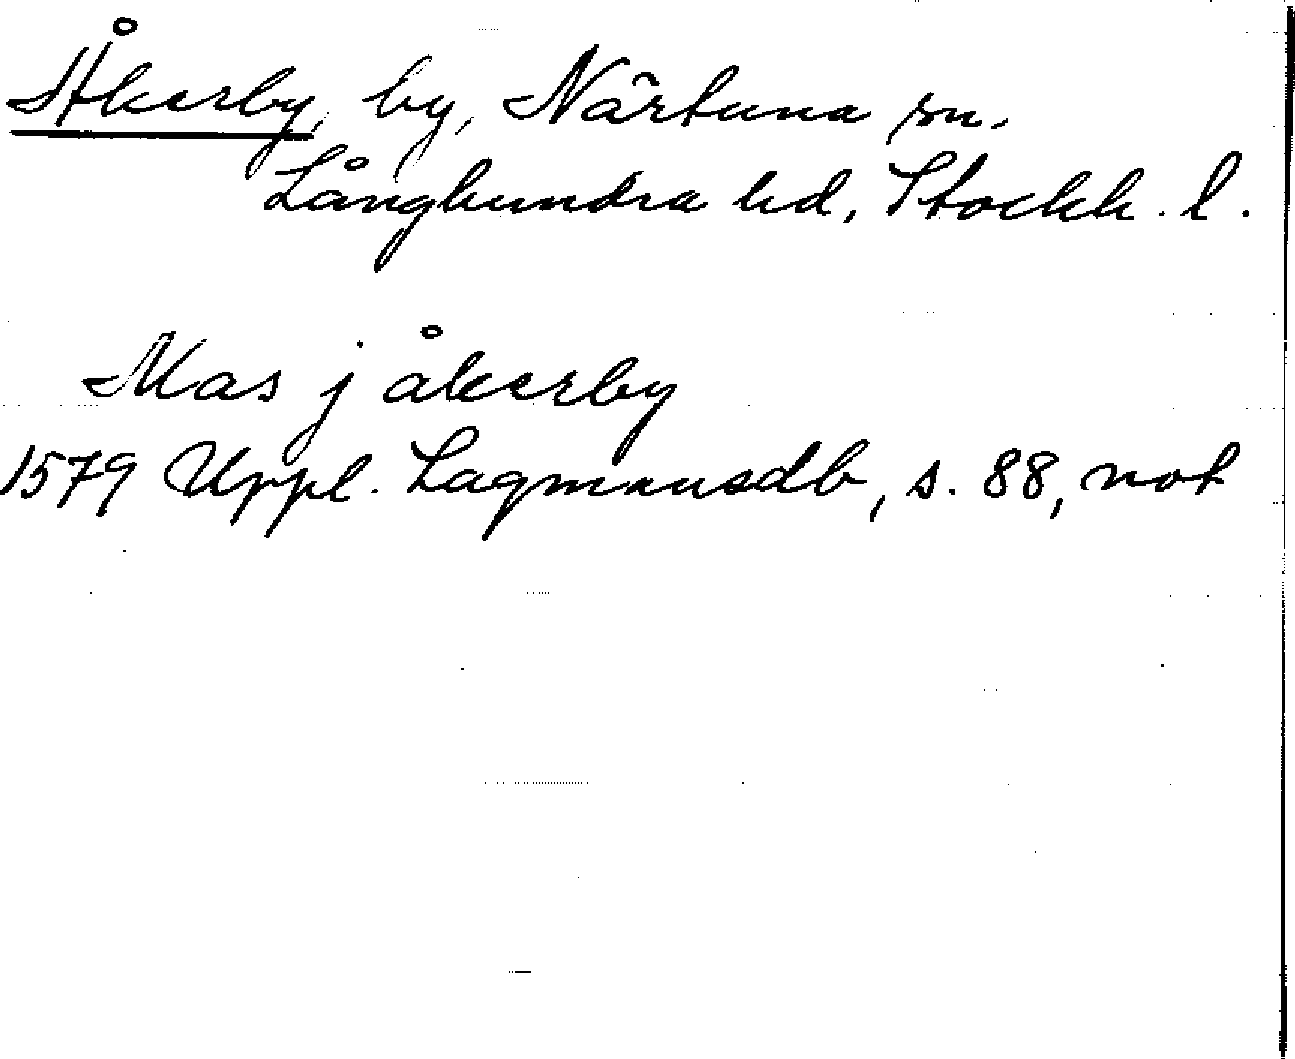 Åkerby, by, Närtuna sn.
Långhundra hd, Stockh. l.
Mas j åkerby
1579 Uppl. Lagmansdb, s. 88, not